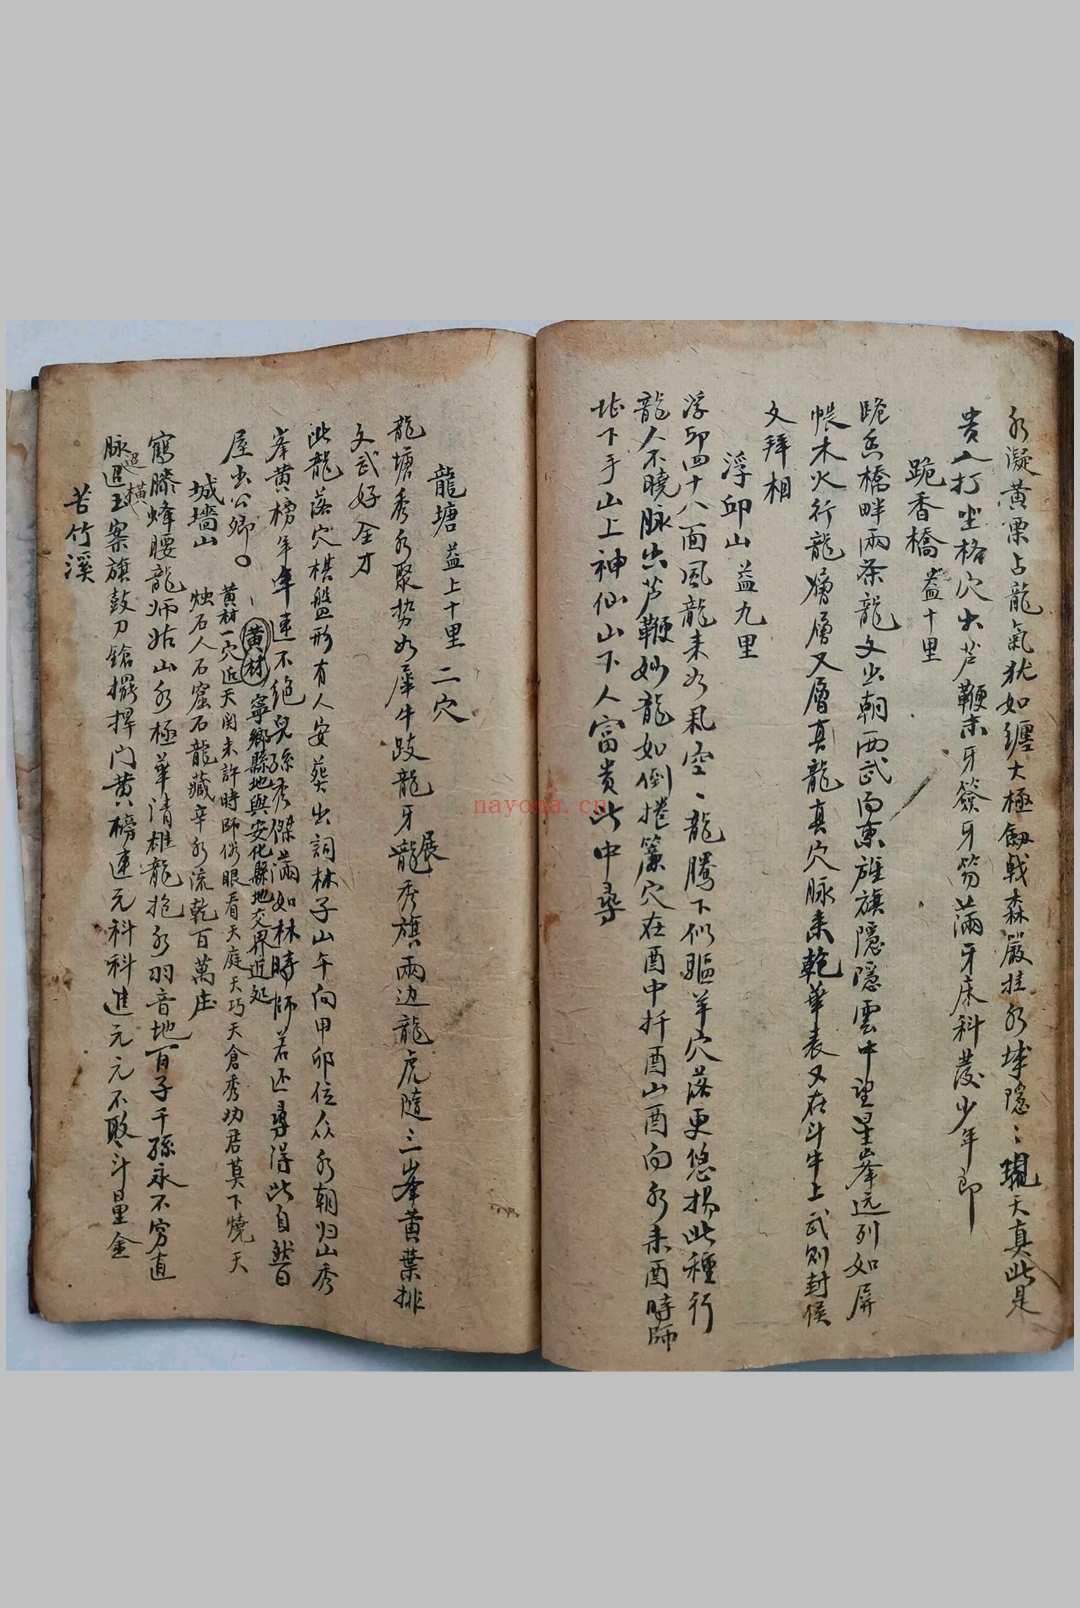 水凝黃栗占龍氣犹如纏大極劍戟森嚴拄水城隱々現天真此是
貴人打坐格穴出芦鞭東牙簽牙笏滿牙床科發少年郎
跪香橋 益十里
跪香橋畔兩条龍文出朝西武向東旌旗隱隱雲中望星峯远列如屏
帳木火行龍層層又層真龍真穴脉来乾華表又在斗牛上武则封侯
文拜相
浮邱山 益九里
浮邱四十八面風龍来水氣空々龍騰下似驅羊穴落更悠揚此種行
龍人不曉脉出芦鞭妙龍如倒捲簾穴在酉中扦酉山酉向水来酉時師
址下手山上神仙山下人富貴此中尋
龍塘 益上十里 二穴
龍塘秀水聚势如犀牛跂龍牙展龍秀旗兩边龍虎隨三峯黃葉排
文武好全才
此龍落穴棋盤形有人安葬出詞林子山午向甲卯位众水朝归山秀
峯黃榜年年連不絶兒孫秀傑滿如林時師若还尋得此自然百
屋出公卿。
黃材 寧鄉縣地與安化縣地交界近处
黃材一穴近天関未許時師俗眼看天庭天巧天倉秀功君莫下燒天
烛石人石窟石龍藏辛水流乾百萬庄
城墻山
鶴膝蜂腰龍师姑山水極華清雄龍抱水羽音地百子千孫永不窮直
脉迢迢橫玉案旗鼓刀鎗擺捍门黃榜連元科科進元元不敗斗量金
苦竹溪
nayona.cn